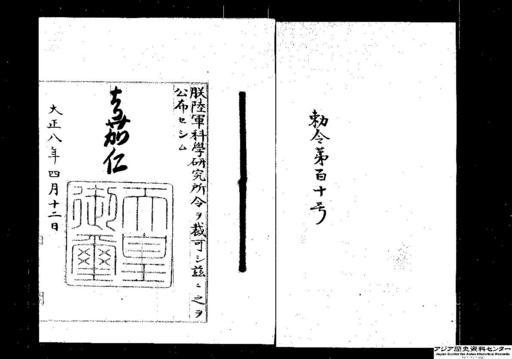 勅令第百十号
朕陸軍科學研究所令ヲ裁可シ茲ニ之ヲ
公布セシム
嘉仁
天皇御璽
大正八年四月十二日
アジア歴史資料センター
Japan Center for Asian Historical Records